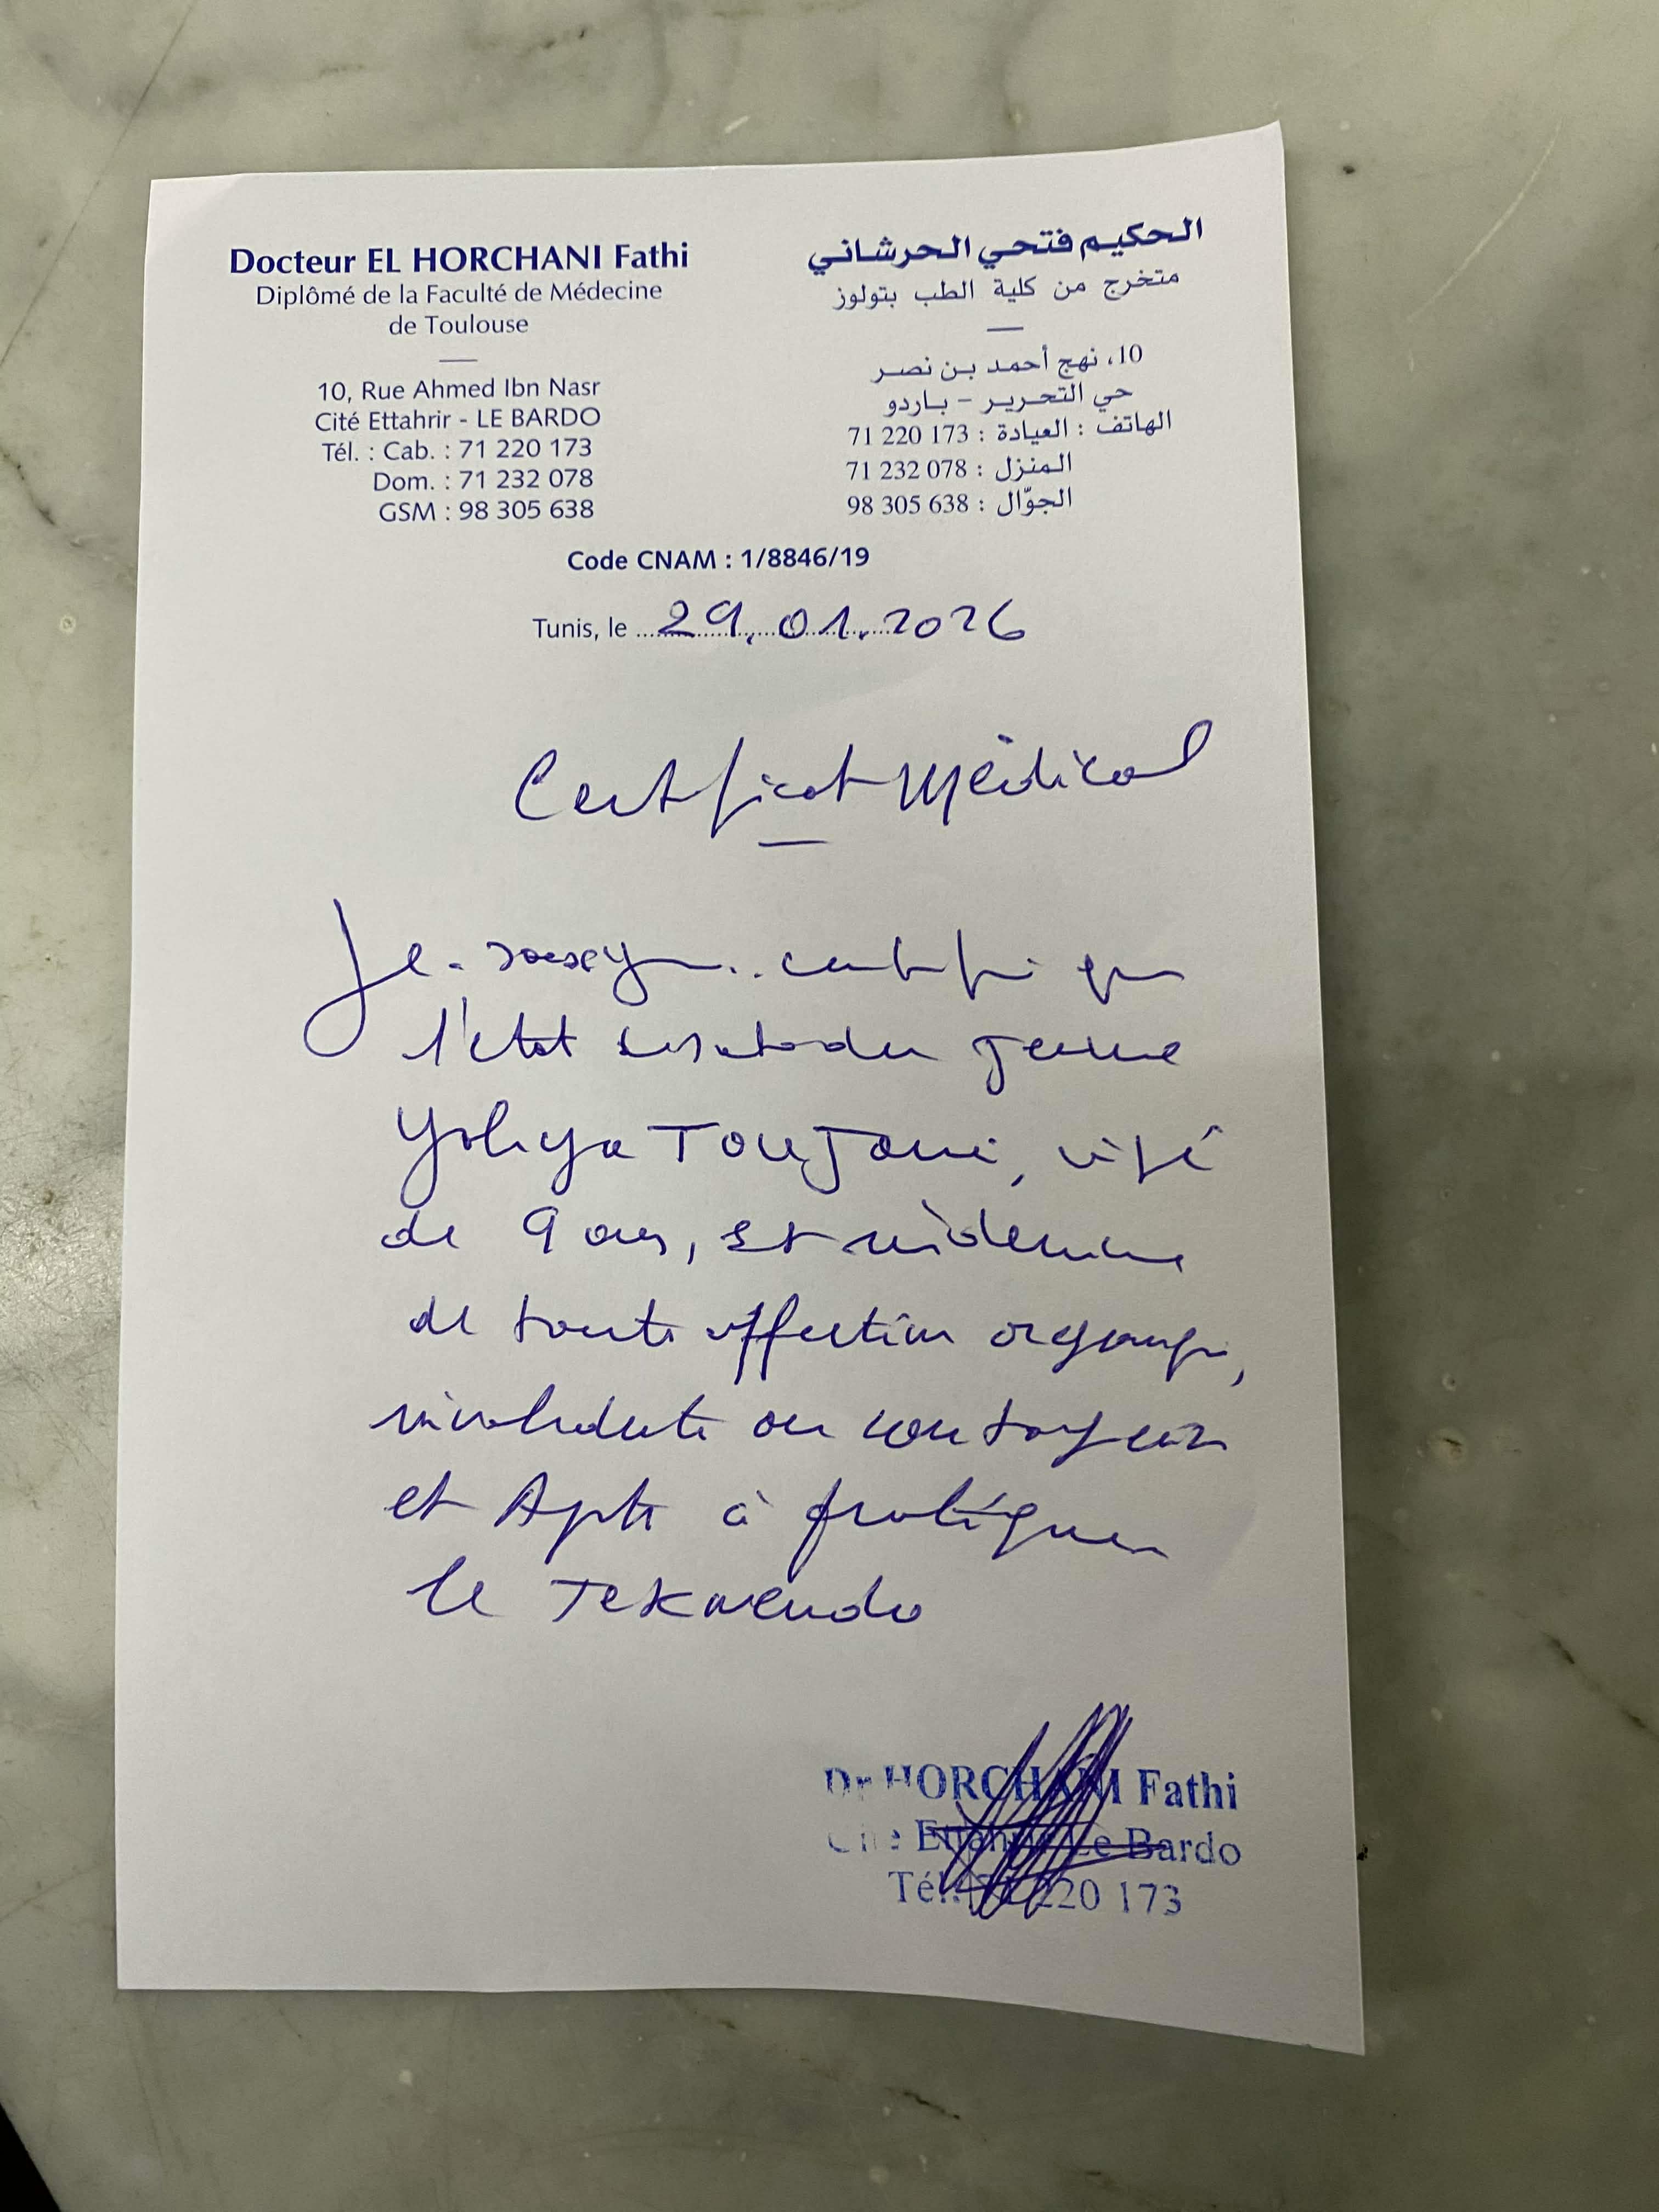 Docteur EL HORCHANI Fathi
Diplômé de la Faculté de Médecine
de Toulouse
10, Rue Ahmed Ibn Nasr
Cité Ettahrir - LE BARDO
Tél. : Cab. : 71 220 173
Dom. : 71 232 078
GSM : 98 305 638
الحكيم فتحي الحرشاني
متخرج من كلية الطب بتولوز
10، نهج أحمد بن نصر
حي التحرير - باردو
الهاتف : العيادة : 173 220 71
المنزل : 078 232 71
الجوّال : 638 305 98
Code CNAM : 1/8846/19
Tunis, le 29.01.2026
Certificat Médical
Je soussigné certifie que
l'état du jeune
Yahya TOUJANI,
de 9 ans, est indemne
de toute affection organique,
invalidante ou contagieuse
et Apte à pratiquer
le Tekwendo
Dr HORCHANI Fathi
Cité Ettahrir Le Bardo
Tél: 71 220 173